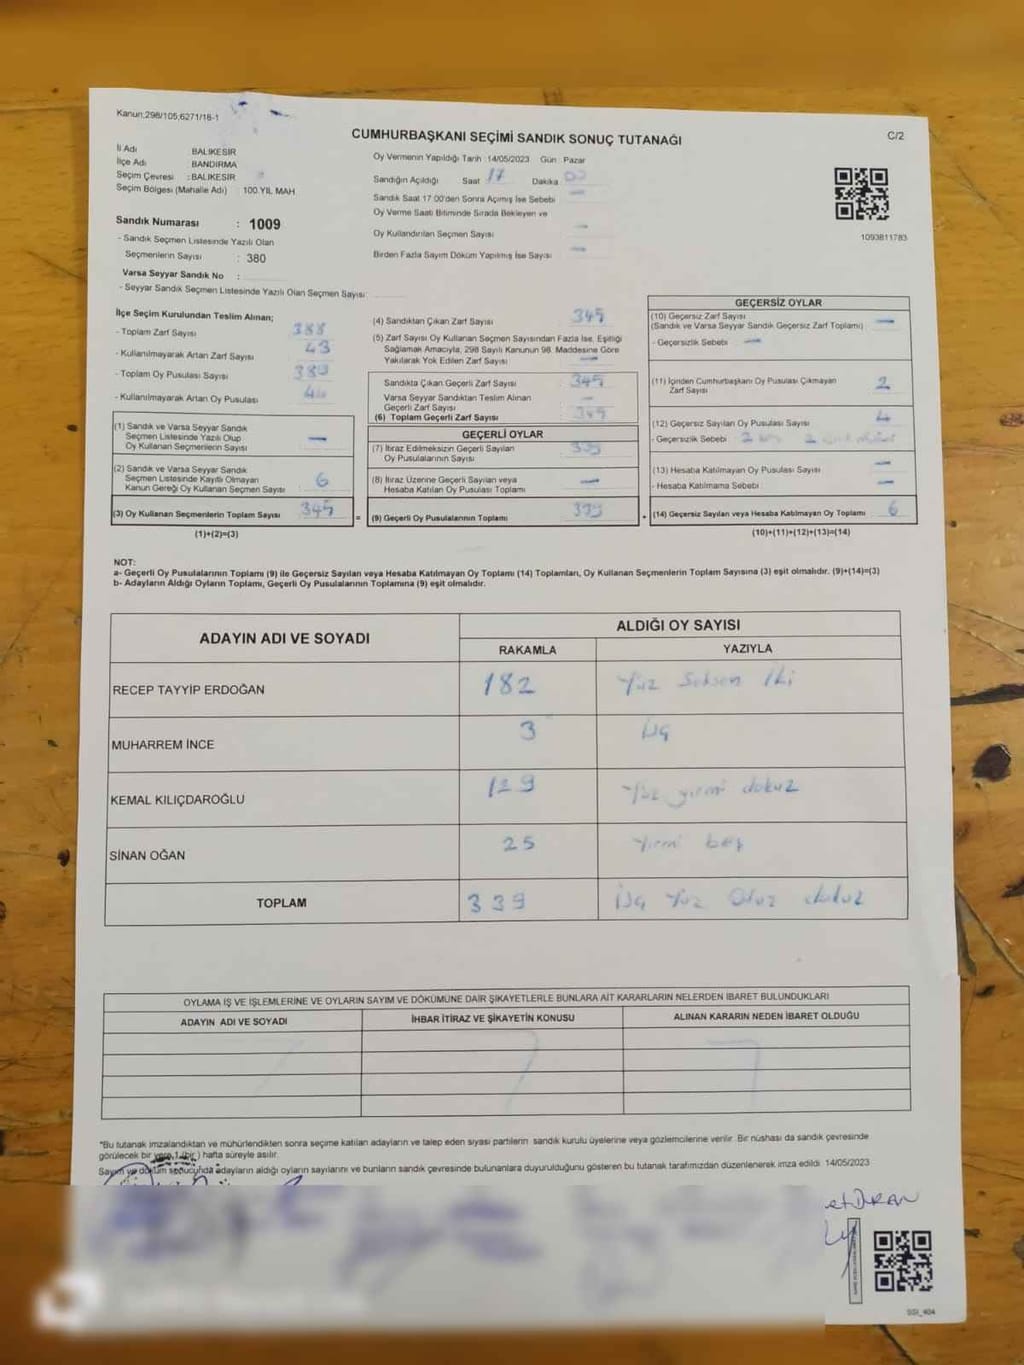 Kanun:298/105;6271/18-1
CUMHURBAŞKANI SEÇİMİ SANDIK SONUÇ TUTANAĞI
C/2
İl Adı BALIKESİR
İlçe Adı BANDIRMA
Seçim Çevresi : BALIKESİR
Seçim Bölgesi (Mahalle Adı) 100.YIL MAH
Sandık Numarası : 1009
- Sandık Seçmen Listesinde Yazılı Olan
Seçmenlerin Sayısı : 380
Varsa Seyyar Sandık No :
- Seyyar Sandık Seçmen Listesinde Yazılı Olan Seçmen Sayısı:
Oy Vermenin Yapıldığı Tarih 14/05/2023 Gün: Pazar
Sandığın Açıldığı Saat 17 Dakika 00
Sandık Saat 17.00'den Sonra Açılmış İse Sebebi —
Oy Verme Saati Bitiminde Sırada Bekleyen ve
Oy Kullandırılan Seçmen Sayısı —
Birden Fazla Sayım Döküm Yapılmış İse Sayısı —
1093811783
İlçe Seçim Kurulundan Teslim Alınan;
- Toplam Zarf Sayısı 388
- Kullanılmayarak Artan Zarf Sayısı 43
- Toplam Oy Pusulası Sayısı
- Kullanılmayarak Artan Oy Pusulası
(1) Sandık ve Varsa Seyyar Sandık
Seçmen Listesinde Yazılı Olup
Oy Kullanan Seçmenlerin Sayısı —
(2) Sandık ve Varsa Seyyar Sandık
Seçmen Listesinde Kayıtlı Olmayan
Kanun Gereği Oy Kullanan Seçmen Sayısı 6
(3) Oy Kullanan Seçmenlerin Toplam Sayısı 345
(1)+(2)=(3)
(4) Sandıktan Çıkan Zarf Sayısı 345
(5) Zarf Sayısı Oy Kullanan Seçmen Sayısından Fazla İse, Eşitliği
Sağlamak Amacıyla, 298 Sayılı Kanunun 98. Maddesine Göre
Yakılarak Yok Edilen Zarf Sayısı —
Sandıkta Çıkan Geçerli Zarf Sayısı 345
Varsa Seyyar Sandıktan Teslim Alınan
Geçerli Zarf Sayısı —
(6) Toplam Geçerli Zarf Sayısı 345
GEÇERLİ OYLAR
(7) İtiraz Edilmeksizin Geçerli Sayılan
Oy Pusulalarının Sayısı 339
(8) İtiraz Üzerine Geçerli Sayılan veya
Hesaba Katılan Oy Pusulası Toplamı —
= (9) Geçerli Oy Pusulalarının Toplamı 339
GEÇERSİZ OYLAR
(10) Geçersiz Zarf Sayısı
(Sandık ve Varsa Seyyar Sandık Geçersiz Zarf Toplamı) —
- Geçersizlik Sebebi —
(11) İçinden Cumhurbaşkanı Oy Pusulası Çıkmayan
Zarf Sayısı 2
(12) Geçersiz Sayılan Oy Pusulası Sayısı 4
- Geçersizlik Sebebi
(13) Hesaba Katılmayan Oy Pusulası Sayısı —
- Hesaba Katılmama Sebebi —
+ (14) Geçersiz Sayılan veya Hesaba Katılmayan Oy Toplamı 6
(10)+(11)+(12)+(13)=(14)
NOT:
a- Geçerli Oy Pusulalarının Toplamı (9) ile Geçersiz Sayılan veya Hesaba Katılmayan Oy Toplamı (14) Toplamları, Oy Kullanan Seçmenlerin Toplam Sayısına (3) eşit olmalıdır. (9)+(14)=(3)
b- Adayların Aldığı Oyların Toplamı, Geçerli Oy Pusulalarının Toplamına (9) eşit olmalıdır.
ADAYIN ADI VE SOYADI ALDIĞI OY SAYISI
RAKAMLA YAZIYLA
RECEP TAYYİP ERDOĞAN 182 Yüz Seksen İki
MUHARREM İNCE 3 Üç
KEMAL KILIÇDAROĞLU 129 Yüz yirmi dokuz
SİNAN OĞAN 25 Yirmi beş
TOPLAM 339 Üç Yüz Otuz dokuz
OYLAMA İŞ VE İŞLEMLERİNE VE OYLARIN SAYIM VE DÖKÜMÜNE DAİR ŞİKAYETLERLE BUNLARA AİT KARARLARIN NELERDEN İBARET BULUNDUKLARI
ADAYIN ADI VE SOYADI İHBAR İTİRAZ VE ŞİKAYETİN KONUSU ALINAN KARARIN NEDEN İBARET OLDUĞU
*Bu tutanak imzalandıktan ve mühürlendikten sonra seçime katılan adayların ve talep eden siyasi partilerin sandık kurulu üyelerine veya gözlemcilerine verilir. Bir nüshası da sandık çevresinde
görülecek bir yere 1 (bir) hafta süreyle asılır.
Sayım ve döküm sonucunda adayların aldığı oyların sayılarını ve bunların sandık çevresinde bulunanlara duyurulduğunu gösteren bu tutanak tarafımızdan düzenlenerek imza edildi. 14/05/2023
DURAN
SSI_404